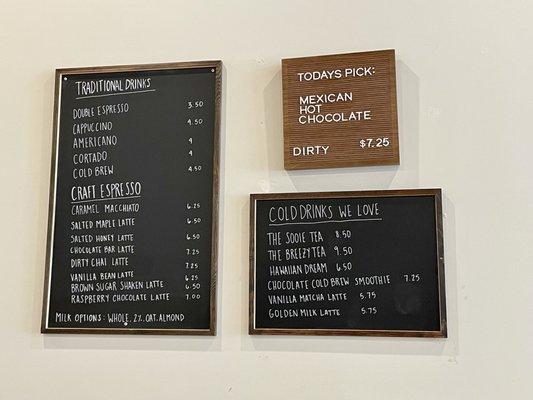 TRADITIONAL DRINKS
DOUBLE ESPRESSO 3.50
CAPPUCCINO 4.50
AMERICANO 4
CORTADO 4
COLD BREW 4.50
CRAFT ESPRESSO
CARAMEL MACCHIATO 6.25
SALTED MAPLE LATTE 6.50
SALTED HONEY LATTE 6.50
CHOCOLATE BAR LATTE 7.25
DIRTY CHAI LATTE 7.25
VANILLA BEAN LATTE 6.25
BROWN SUGAR SHAKEN LATTE 6.50
RASPBERRY CHOCOLATE LATTE 7.00
MILK OPTIONS: WHOLE, 2%, OAT, ALMOND
TODAYS PICK:
MEXICAN
HOT
CHOCOLATE
DIRTY $7.25
COLD DRINKS WE LOVE
THE SOOIE TEA 8.50
THE BREEZY TEA 9.50
HAWAIIAN DREAM 6.50
CHOCOLATE COLD BREW SMOOTHIE 7.25
VANILLA MATCHA LATTE 5.75
GOLDEN MILK LATTE 5.75